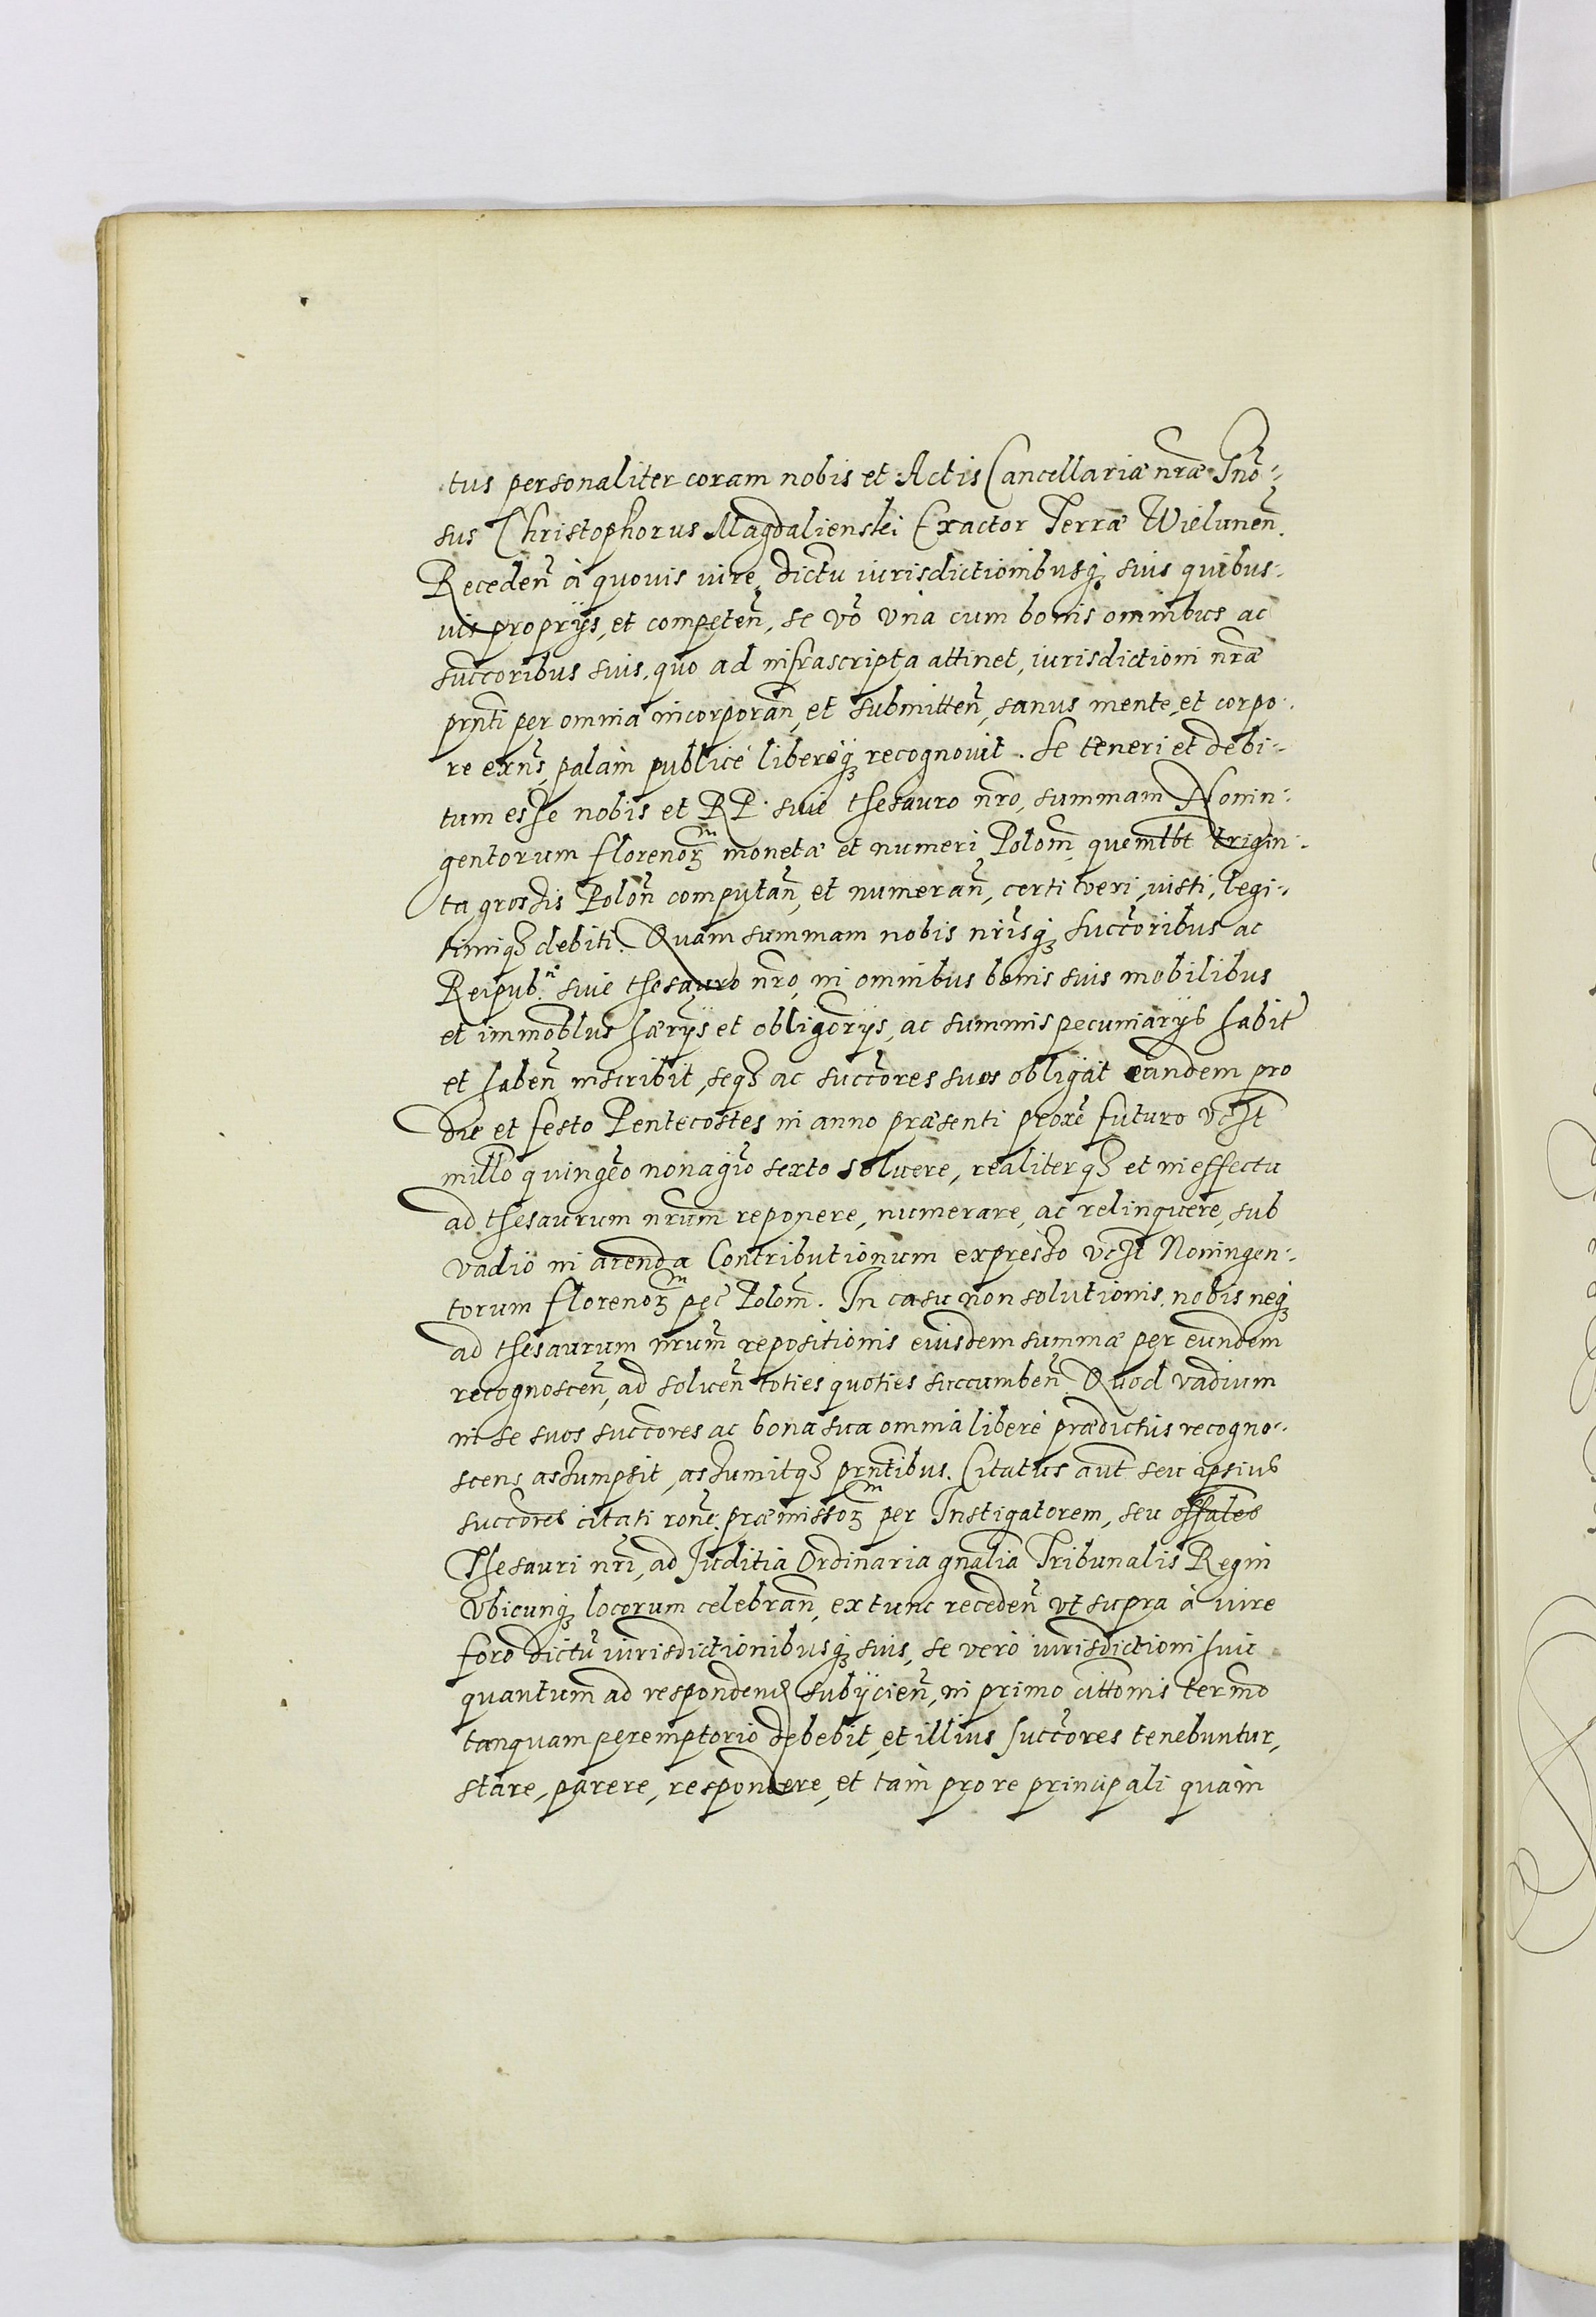 tus personaliter coram nobis et Actis Cancellariæ nræ Gnō-
sus Christophorus Magdalienski Exactor Terræ Wielunen̄.
Receden̄ à quovis iure, dictu iurisdictionibusq; suis quibus-
vis proprijs, et competen̄, se vō vna cum bonis omnibus ac
succōribus suis, quo ad infrascripta attinet, iurisdictioni nræ
prn̄ti per omnia incorporan̄, et submitten̄, sanus mente, et corpo-
re exn̄s, palàm publicè liberèq; recognovit. Se teneri et debi-
tum esse nobis et RP. sive thesauro nr̄o, summam Nonin-
gentorum florenoꝝ m monetæ et numeri Polon̄, quemlb̄t trigin-
ta grossis Polon̄ computan̄, et numeran̄, certi veri, iusti, legi-
timiq; debiti. Quam summam nobis nr̄isq; succōribus ac
Reipub. sive thesauro nr̄o, in omnibus bonis suis mobilibus
et immōblus hær̄ijs et obliḡorijs, ac summis pecuniarijs habit̄
et haben̄ inscribit, seq; ac succōres suos obligat eandem pro
die et festo Pentecostes in anno præsenti prox̄e futuro vc̄zt
mill̄o quinḡeo nonaḡio sexto solvere, realiterq; et in effectu
ad thesaurum nr̄um reponere, numerare, ac relinquere, sub
vadio in arenda Contributionum expresso vc̄zt Noningen-
torum florenoꝝ m pec̄ Polon̄. In casu non solutionis, nobis neq;
ad thesaurum nr̄um repositionis eiusdem summæ per eundem
recognoscen̄, ad solven̄ toties quoties succumben̄. Quod vadium
in se suos succōres ac bona sua omnia liberè prædictus recogno-
scens assumpsit, assumitq; prn̄tibus. Citatus aūt seu ipsius
succōres citati ron̄e præmissoꝝ m per Instigatorem, seu offāles
Thesauri nr̄i, ad Juditia Ordinaria gn̄alia Tribunalis Regni
vbicunq; locorum celebran̄, extunc receden̄ vt supra à iure
foro dictu iurisdictionibusq; suis, se verò iurisdictioni huic
quantum ad respondend̄ subijcien̄, in primo citt̄onis term̄o
tanquam peremptorio debebit, et illius succōres tenebuntur,
stare, parere, respondere, et tàm pro re principali quàm